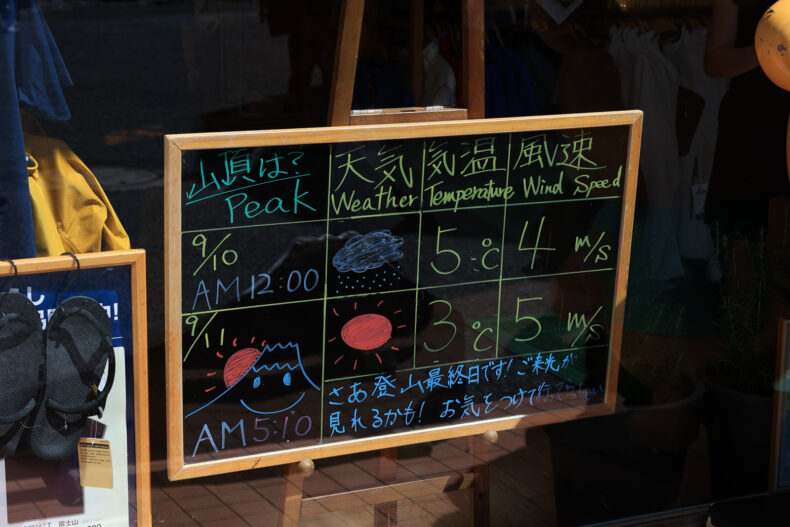 山頂は? 天気 気温 風速
Peak Weather Temperature Wind Speed
9/10 5℃ 4 m/s
AM12:00
9/11 3℃ 5 m/s
さあ登山最終日です!ご来光が
見れるかも! お気をつけて
AM5:10
富士山